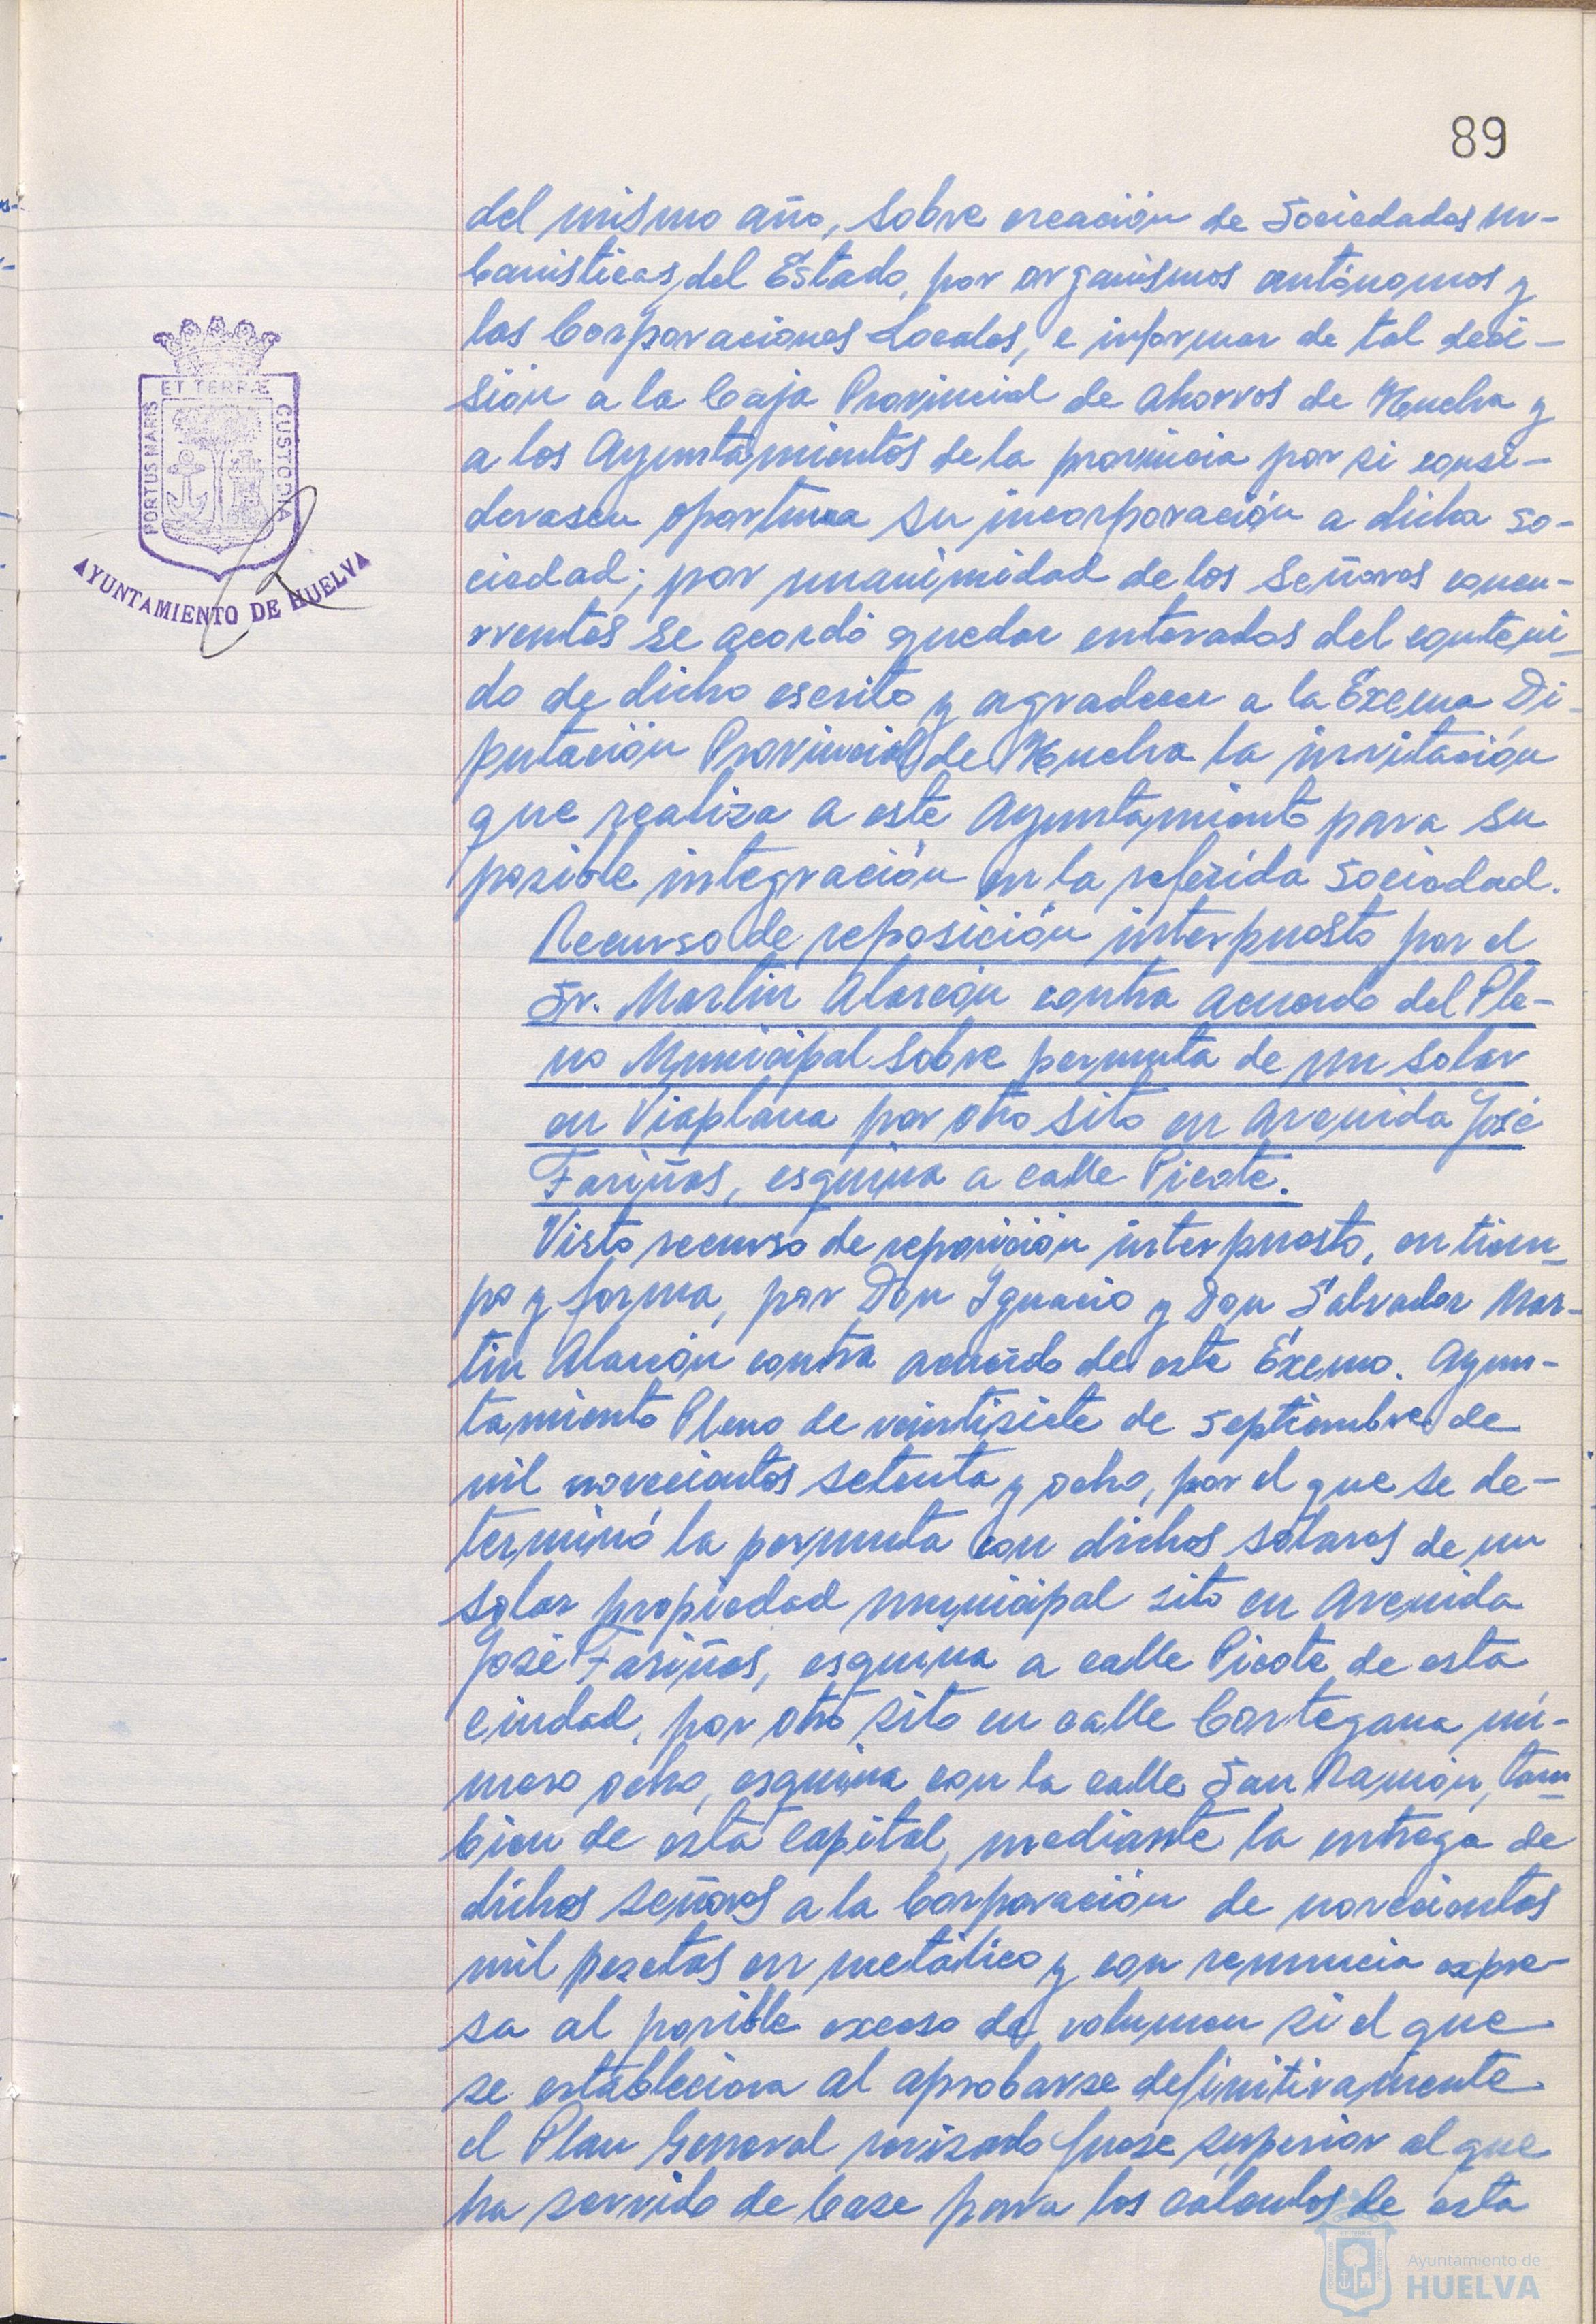 89
del mismo año, sobre creación de Sociedades ur-
banísticas, del Estado, por organismos autónomos y
las Corporaciones Locales, e informar de tal deci-
sión a la Caja Provincial de Ahorros de Huelva y
a los Ayuntamientos de la provincia por si consi-
derasen oportuna su incorporación a dicha so-
ciedad; por unanimidad de los señores concu-
rrentes se acordó quedar enterados del conteni-
do de dicho escrito y agradecer a la Excma Di-
putación Provincial de Huelva la invitación
que realiza a este Ayuntamiento para su
posible integración en la referida Sociedad.
Recurso de reposición interpuesto por el
Sr. Martín Alarcón contra acuerdo del Ple-
no Municipal sobre permuta de un solar
en Viaplana por otro sito en Avenida José
Fariñas, esquina a calle Picote.
Visto recurso de reposición interpuesto, en tiem-
po y forma, por Don Ignacio y Don Salvador Mar-
tín Alarcón contra acuerdo de este Excmo. Ayun-
tamiento Pleno de veintisiete de septiembre de
mil novecientos setenta y ocho, por el que se de-
terminó la permuta con dichos solares de un
solar propiedad municipal sito en Avenida
José Fariñas, esquina a calle Picote, de esta
ciudad, por otro sito en calle Cortegana nú-
mero ocho, esquina con la calle San Ramón, tam-
bien de esta Capital, mediante la entrega de
dichos señores a la Corporación de novecientos
mil pesetas en metálico y con renuncia expre-
sa al posible exceso de volumen si el que
se estableciera al aprobarse definitivamente
el Plan General revisado fuese superior al que
ha servido de base para los cálculos de esta
PORTUS MARIS
ET TERRÆ
CUSTODIA
AYUNTAMIENTO DE HUELVA
Ayuntamiento de
HUELVA